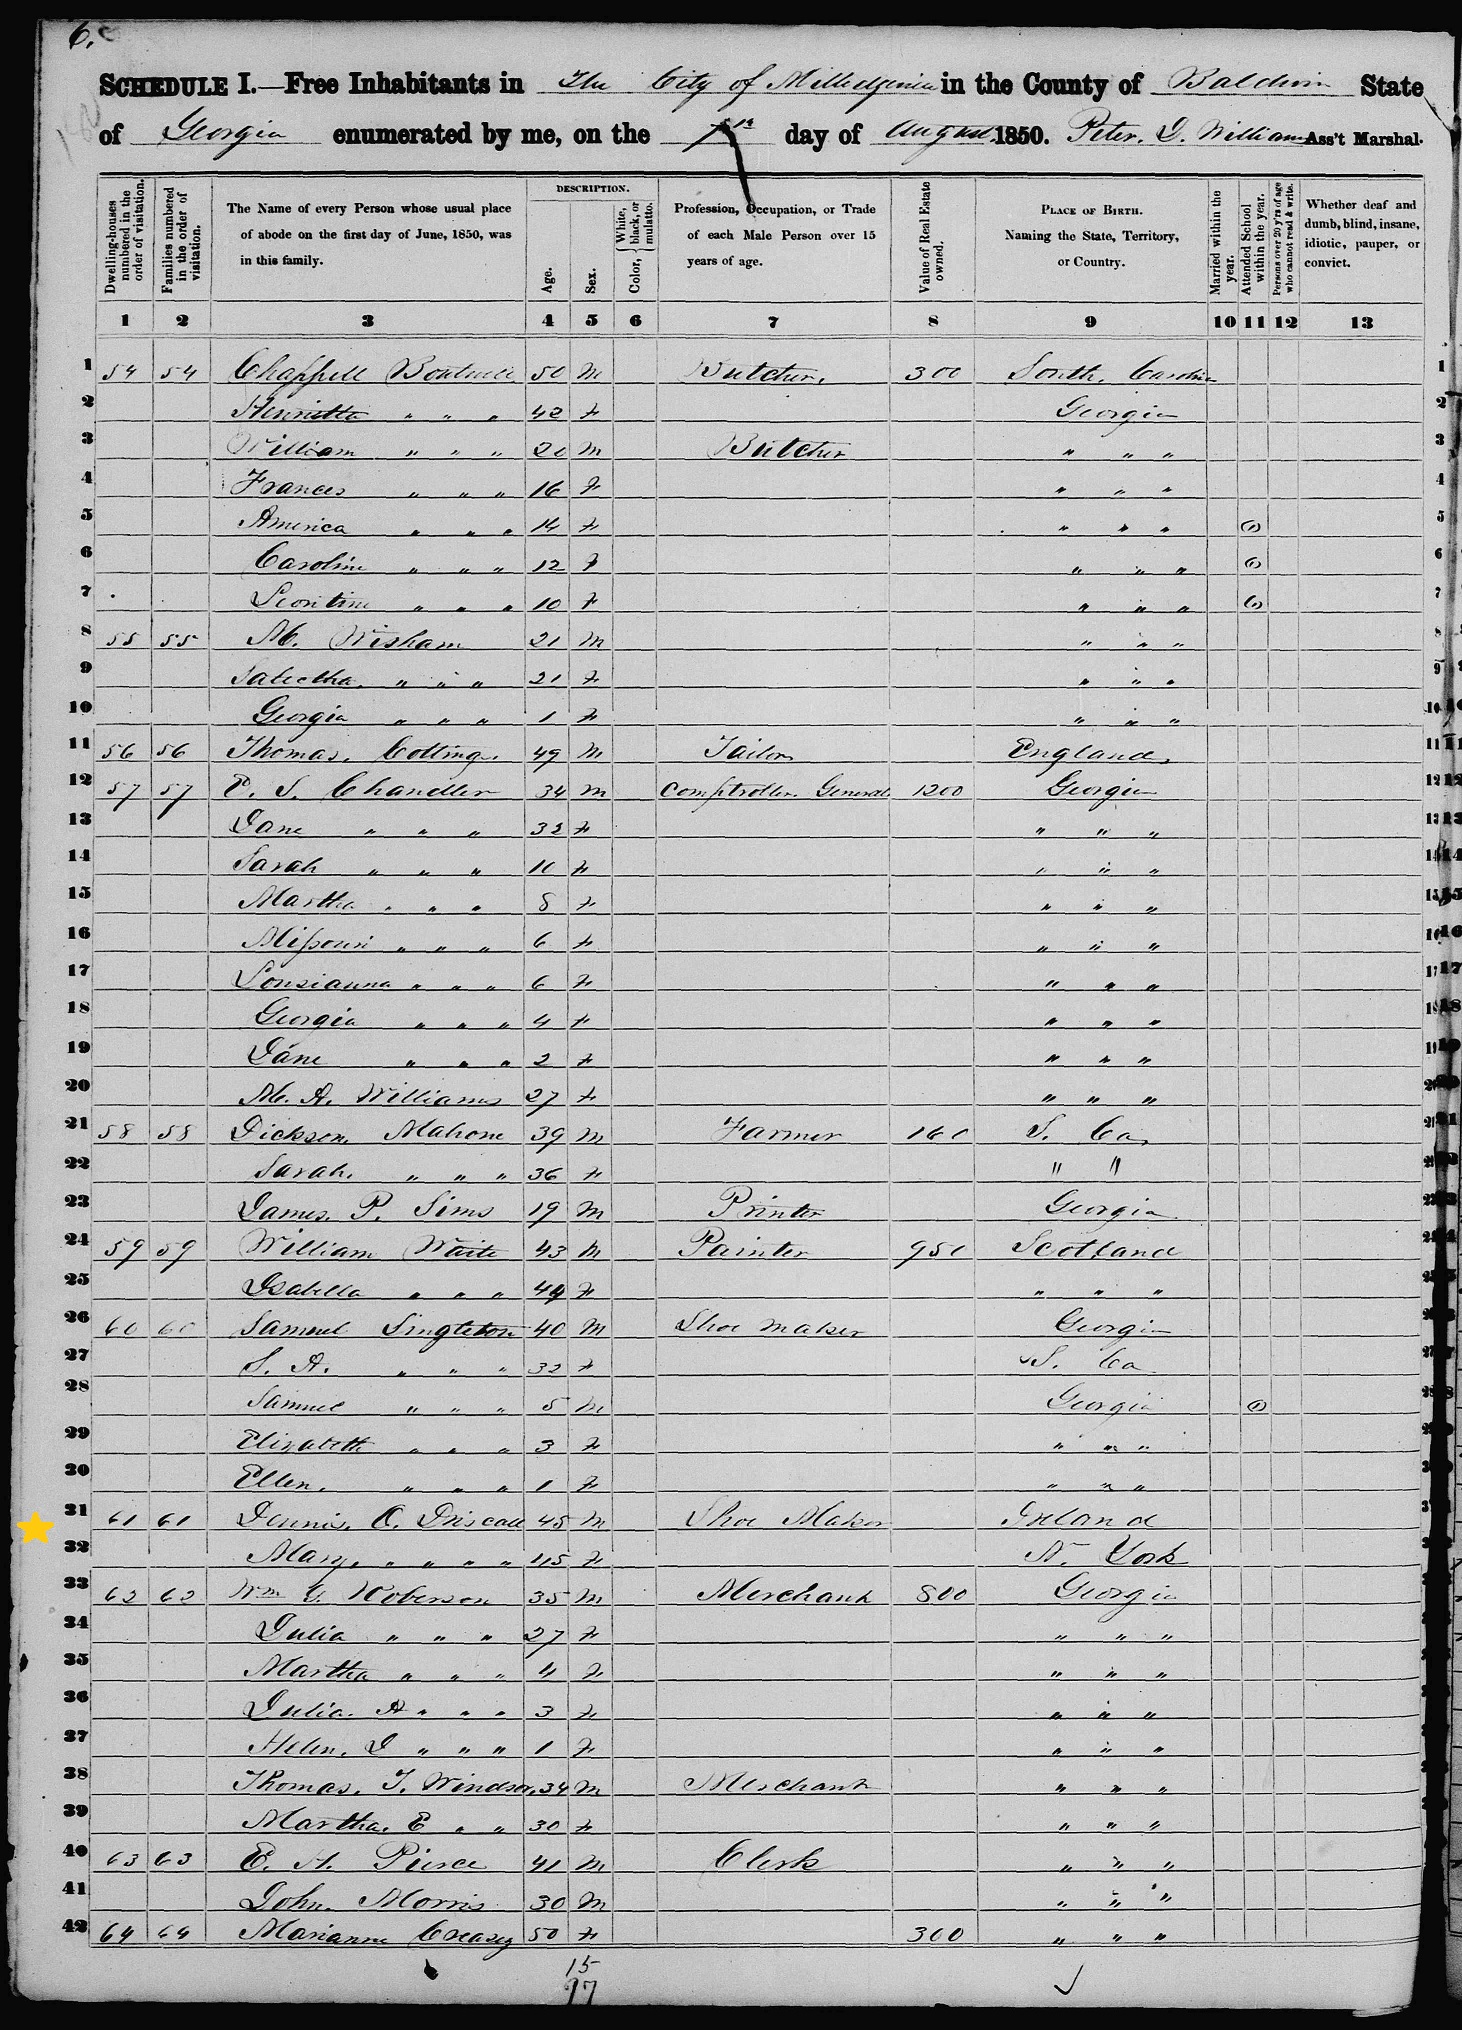 6.
SCHEDULE I.—Free Inhabitants in The City of Milledgeville in the County of Baldwin State
of Georgia enumerated by me, on the 1st day of August 1850. Peter. J. Williams Ass't Marshal.
Dwelling-houses numbered in the order of visitation.
Families numbered in the order of visitation.
The Name of every Person whose usual place of abode on the first day of June, 1850, was in this family.
DESCRIPTION.
Age.
Sex.
Color, { White, black, or mulatto.
Profession, Occupation, or Trade of each Male Person over 15 years of age.
Value of Real Estate owned.
PLACE OF BIRTH. Naming the State, Territory, or Country.
Married within the year.
Attended School within the year.
Persons over 20 y'rs of age who cannot read & write.
Whether deaf and dumb, blind, insane, idiotic, pauper, or convict.
1 2 3 4 5 6 7 8 9 10 11 12 13
1 54 54 Chappell Boutwell 50 M Butcher. 300 South. Carolina 1
2 Henrietta " " " 42 F Georgia 2
3 William " " " 20 M Butcher " " " 3
4 Frances " " " 16 F " " " 4
5 America " " " 14 F " " " (1) 5
6 Caroline " " " 12 F " " " (1) 6
7 Leontine " " " 10 F " " " (1) 7
8 55 55 M. Wisham 21 M " " " 8
9 " " " 21 F " " " 9
10 Georgia " " " 1 F " " " 10
11 56 56 Thomas. Cotting. 49 M Tailor England. 11
12 57 57 E. S. Chandler 34 M Comptroller. General 1200 Georgia 12
13 Jane " " " 32 F " " " 13
14 Sarah " " " 10 F " " " 14
15 Martha " " " 8 F " " " 15
16 Missouri " " " 6 F " " " 16
17 Lousianna " " " 6 F " " " 17
18 Georgia " " " 4 F " " " 18
19 Jane " " " 2 F " " " 19
20 M. A. Williams 27 F " " " 20
21 58 58 Dickson. Mahone 39 M Farmer 160 S. Ca. 21
22 Sarah. " " " 36 F " " 22
23 James. P. Sims 19 M Printer Georgia 23
24 59 59 William Waite 43 M Painter 950 Scotland 24
25 Isabella " " " 44 F " " " 25
26 60 60 Samuel Singleton 40 M Shoe maker Georgia
27 S. A. " " " 32 F S. Ca 27
28 Samuel " " " 5 M Georgia (1) 28
29 Elizabeth " " " 3 F " " "
30 Ellen. " " " 1 F " " "
31 61 61 Dennis. O. Driscall 45 M Shoe Maker Ireland
32 Mary. " " " " 45 F N. York
33 62 62 Wm G. Roberson 35 M Merchant 800 Georgia
34 Julia " " " 27 F " " "
35 Martha " " " 4 F " " "
36 Julia. A " " " 3 F " " "
37 Helen. J " " " 1 F " " "
38 Thomas. T. Windsor. 34 M Merchant " " "
39 Martha. E " " 30 F " " "
40 63 63 E. A. Pierce 41 M Clerk " " "
41 John. Morris 30 M " " "
42 64 64 Marianne Creasey 50 F 300 " " "
15
27